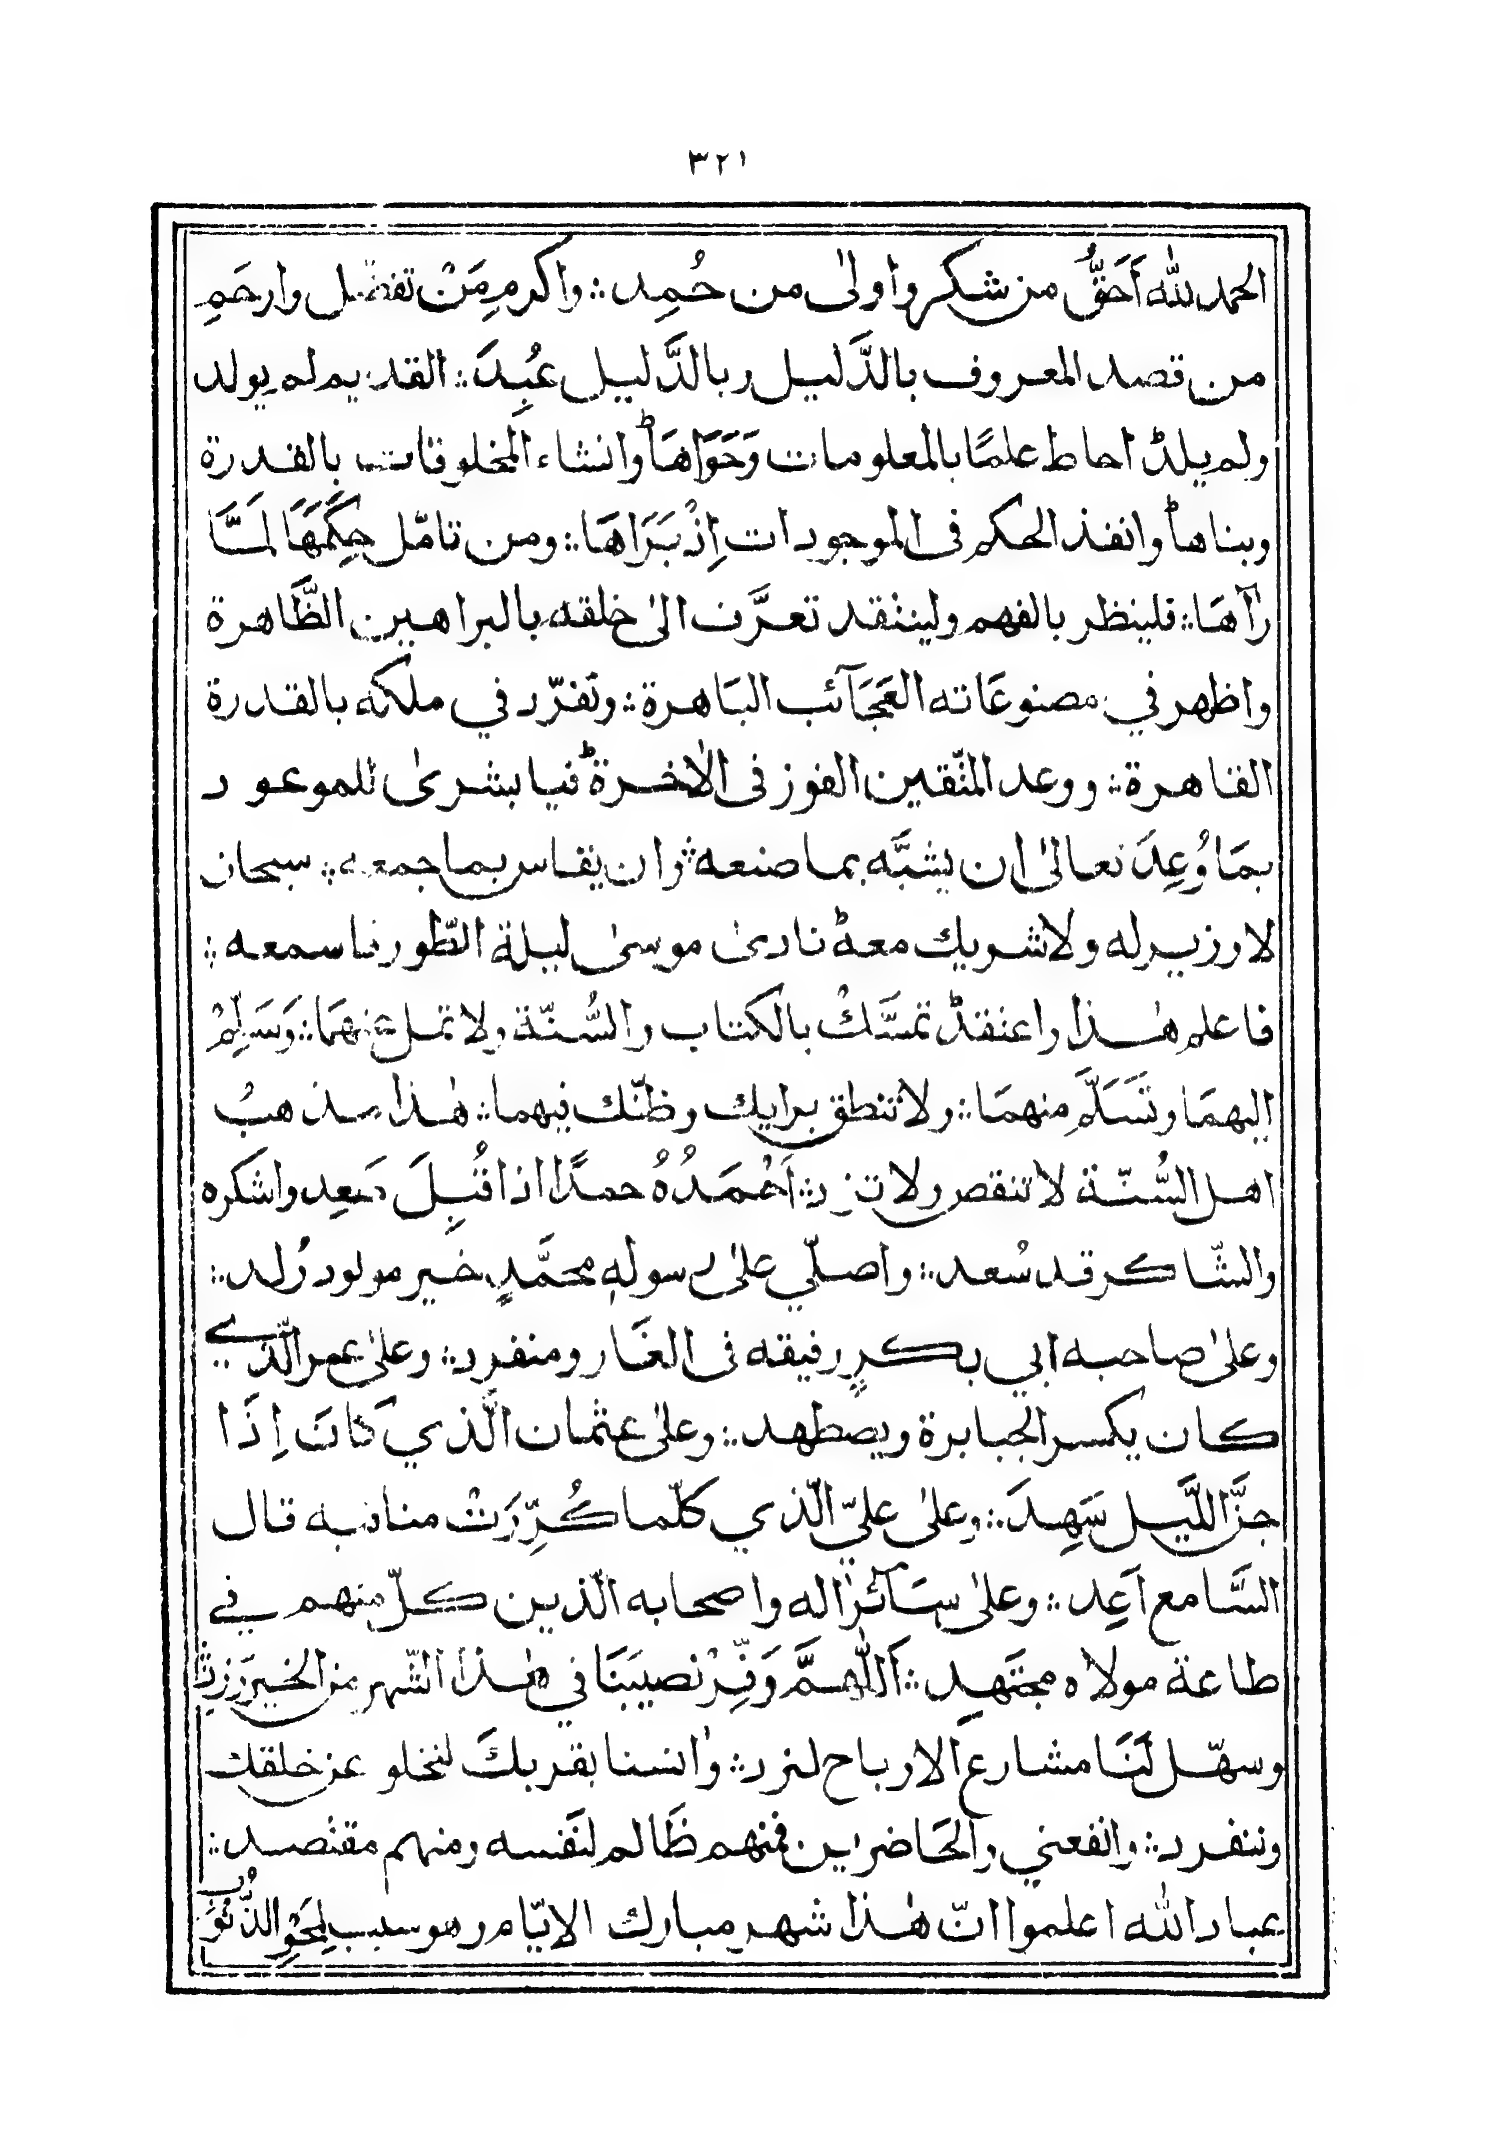 ٣٢١
الحمد لله أَحَقُّ من شكر واولىٰ من حُمِد ؞ واكرمِ مَنْ تفضّل وارحَمِ
من قصد المعروف بالدَّليل ربالدَّليل عُبِدَ ؞ القديم لم يولد
ولم يلد ؕ احاط علمًا بالمعلومات وَحَوَاهَا ؕ وانشاء المَخلوقات بالقدرة
وبناها ؕ وانفذ الحكم فى الموجودات اِذْ بَرَاهَا ؞ ومن تامّل حِكَمَهَا لمَّا
راٰهَا ؞ فلينظر بالفهم ولينتقد تعرَّف الىٰ خلقه بالبراهين الظَّاهرة
واظهر في مصنوعَاته العَجَآئب البَاهرة ؞ وتفرّد في ملكه بالقدرة
القاهرة ؞ ووعد المتّقين الفوز فى الاٰخرة ؕ فيا بشرىٰ للموعود
بمَا وُعِدَ تعالىٰ ان يشبَّه بما صنعه ؞ ران يقاس بما جمعه ؞ سبحان
لا وزير له ولا شريك معه ؕ نادىٰ موسىٰ ليلة الطّور فاسمعه ؞
فاعلم هٰذا واعتقد ؕ تمسَّكْ بالكتاب والسُّنّة ولا تمل عنهمَا ؞ وَسَلِّمْ
اليهمَا وتَسَلَّمِ منهمَا ؞ ولا تنطق برايك وظنّك فيهما ؞ هٰذا مذهبُ
اهل السُّنّة لا تنقص ولا تزد ؞ اَحْمَدُهُ حمدًا اذا قُبِلَ صَعِد واشكره
والشّاكر قد سُعد ؞ واصلّي علىٰ رسولهٖ محمَّدٍ خير مولود وُلد ؞
وعلىٰ صاحبه ابي بكرٍ رفيقه فى الغَار ومنفرد ؞ وعلىٰ عمر الّذي
كان يكسر الجبابرة ويضطهد ؞ وعلىٰ عثمان الَّذي كَانَ اِذَا
جنَّ اللَّيل سَهِدَ ؞ وعلىٰ عليّ الّذي كلّما كُرِّرَتْ مناقبه قال
السَّامع اَعِد ؞ وعلىٰ سَآئر اٰله واصحابه الّذين كلّ منهم في
طاعة مولاه مجتَهِد ؞ اَللّٰهمَّ وَفِّرْ نصيبَنَا في هٰذا الشّهر من الخير وَزِدْ
وسهّل لَنَا مشارع الارباح لنرد ؞ واٰنسنا بقربكَ لنخلو عن خلقك
وننفرد ؞ وانفعني والحَاضرين فمنهم ظَالم لنَفسه ومنهم مقتصد ؞
عباد الله اعلموا انّ هٰذا شهر مبارك الايّام وهو سبب لِمَحْوِ الذّنُوبِ